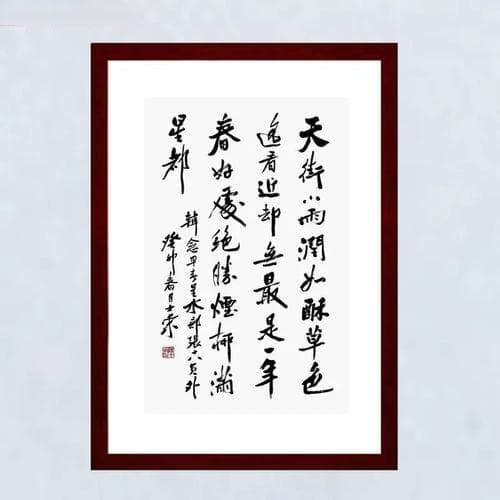 天街小雨潤如酥草色
遙看近却無最是一年
春好處絕勝煙柳滿
皇都
韓愈早春呈水部張十八員外
癸卯春月士